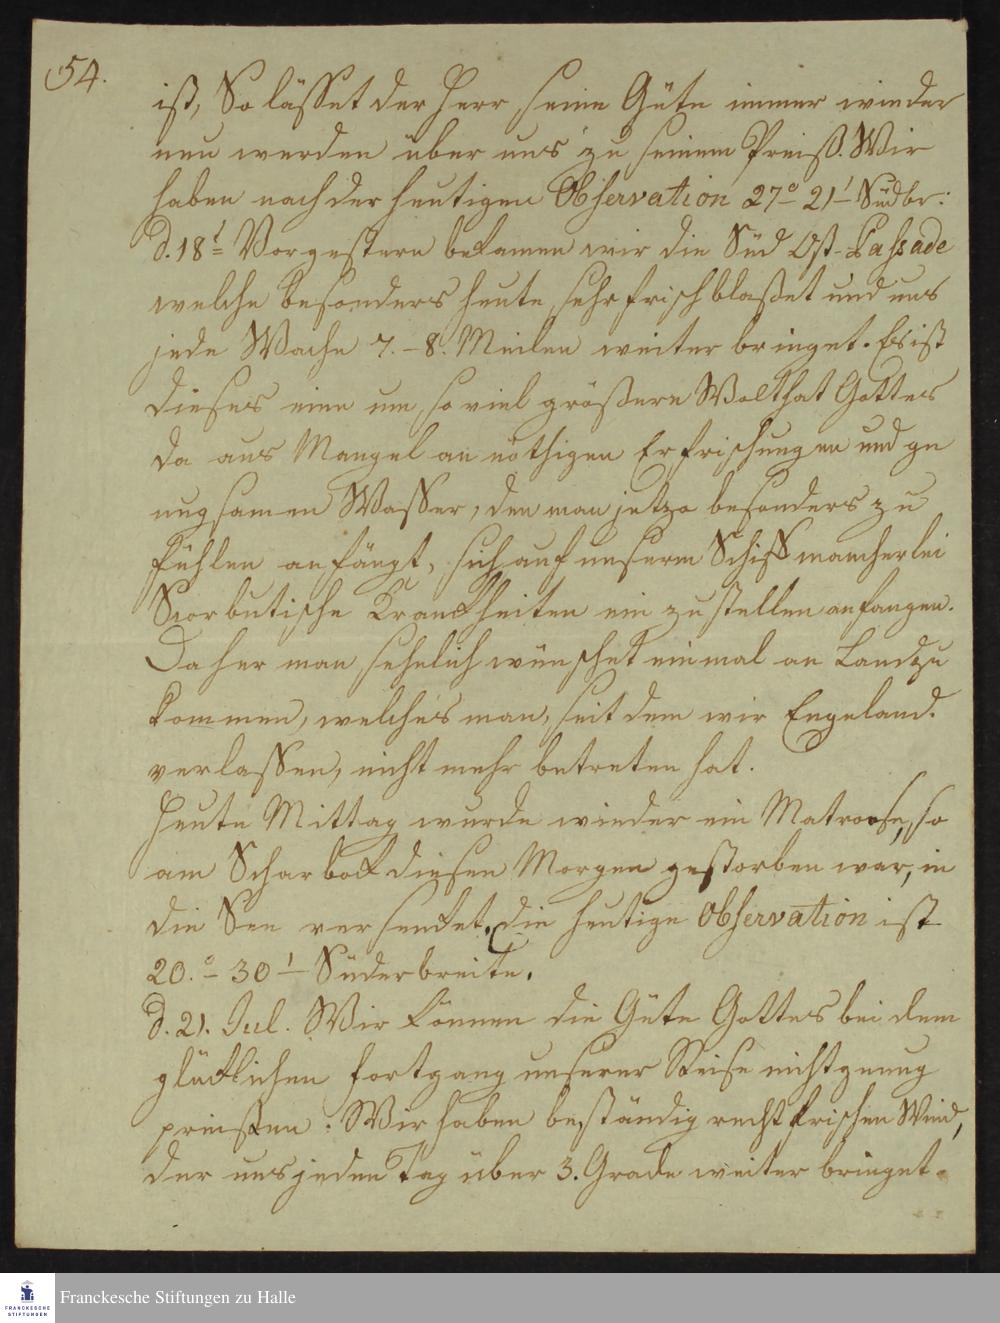 54.
ist, So lässet der Herr seine Güte immer wieder
neu werden über uns zu seinem Preiß. Wir
haben nach der heutigen Observation 27° 21' Südbr:
d. 18t Vorgestern bekamen wir die Süd Ost-Passade
welche besonders heute sehr frisch blaßet und uns
jede Wache 7.-8. Meilen weiter bringet. Es ist
dieses eine um so viel größere Wolthat Gottes
da aus Mangel an nöthigen Erfrischungen und ge
nugsamen Wasser, den man jetzo besonders zu
fühlen anfängt, sich auf unserm Schiff mancherlei
Scorbutische Krankheiten ein zu stellen anfangen.
Daher man sehnlich wünschet einmal an Land zu
kommen, welches man, seit dem wir Engeland
verlassen, nicht mehr betreten hat.
Heute Mittag wurde wieder ein Matroose, so
am Scharbok diesen Morgen gestorben war, in
die See versenket. Die heutige Observation ist
20.° 30' Süderbreite.
d. 21. Jul. Wir können die Güte Gottes bei dem
glücklichen fortgang unserer Reise nicht genug
preißen. Wir haben beständig recht frischen Wind,
der uns jeden Tag über 3. Grade weiter bringet.
FRANCKESCHE
STIFTUNGEN
Franckesche Stiftungen zu Halle